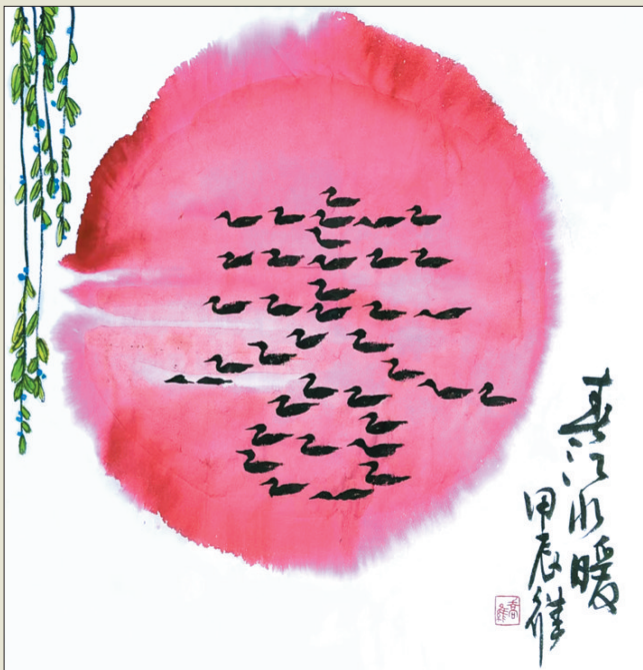 春
春江水暖
甲辰